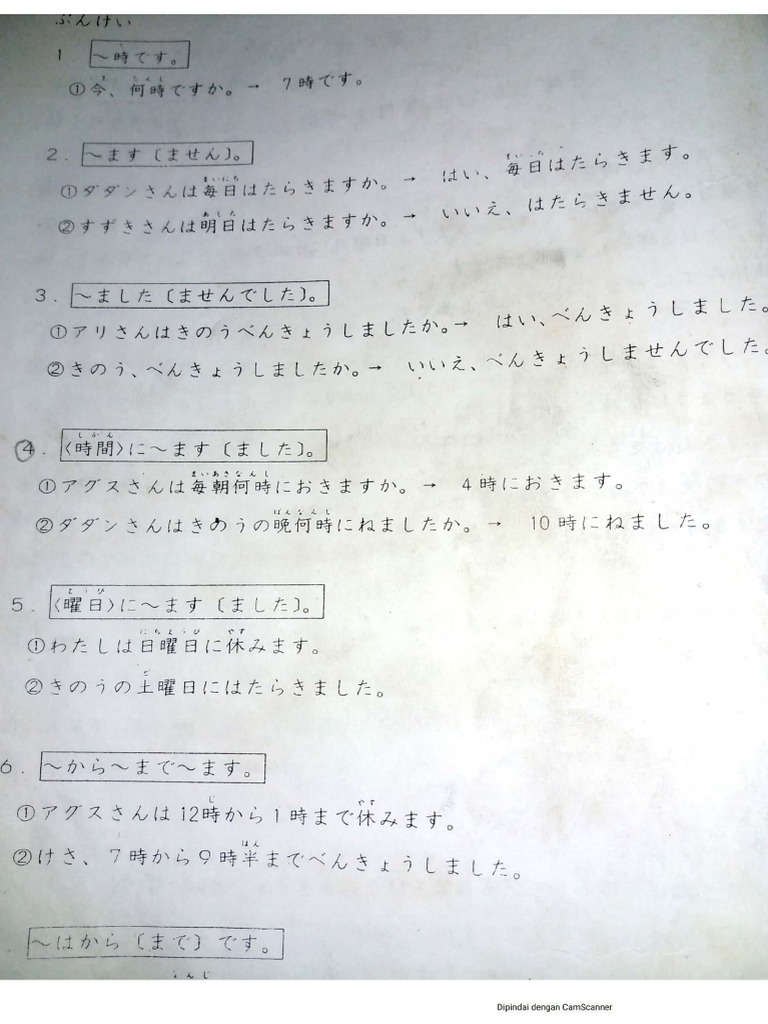 ぶんけい
1 ～時です。
①今、何時ですか。→ 7時です。
2. ～ます〔ません〕。
①ダダンさんは毎日はたらきますか。→ はい、毎日はたらきます。
②すずきさんは明日はたらきますか。→ いいえ、はたらきません。
3. ～ました〔ませんでした〕。
①アリさんはきのうべんきょうしましたか。→ はい、べんきょうしました。
②きのう、べんきょうしましたか。→ いいえ、べんきょうしませんでした。
4. 〈時間〉に～ます〔ました〕。
①アグスさんは毎朝何時におきますか。→ 4時におきます。
②ダダンさんはきのうの晩何時にねましたか。→ 10時にねました。
5. 〈曜日〉に～ます〔ました〕。
①わたしは日曜日に休みます。
②きのうの土曜日にはたらきました。
6. ～から～まで～ます。
①アグスさんは12時から1時まで休みます。
②けさ、7時から9時半までべんきょうしました。
～はから〔まで〕です。
Dipindai dengan CamScanner